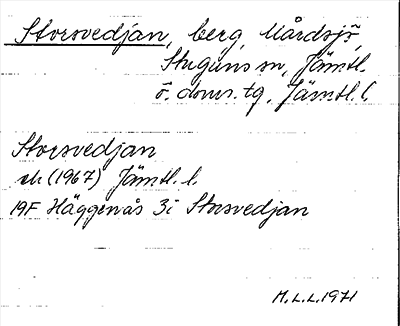 Storsvedjan, berg, Mårdsjö,
Stuguns sn, Jämtl.
ö. doms. tg. Jämtl. l.
Storsvedjan
ek (1967) Jämtl. l.
19F Häggenås 3i Storsvedjan
M.L.L. 1971